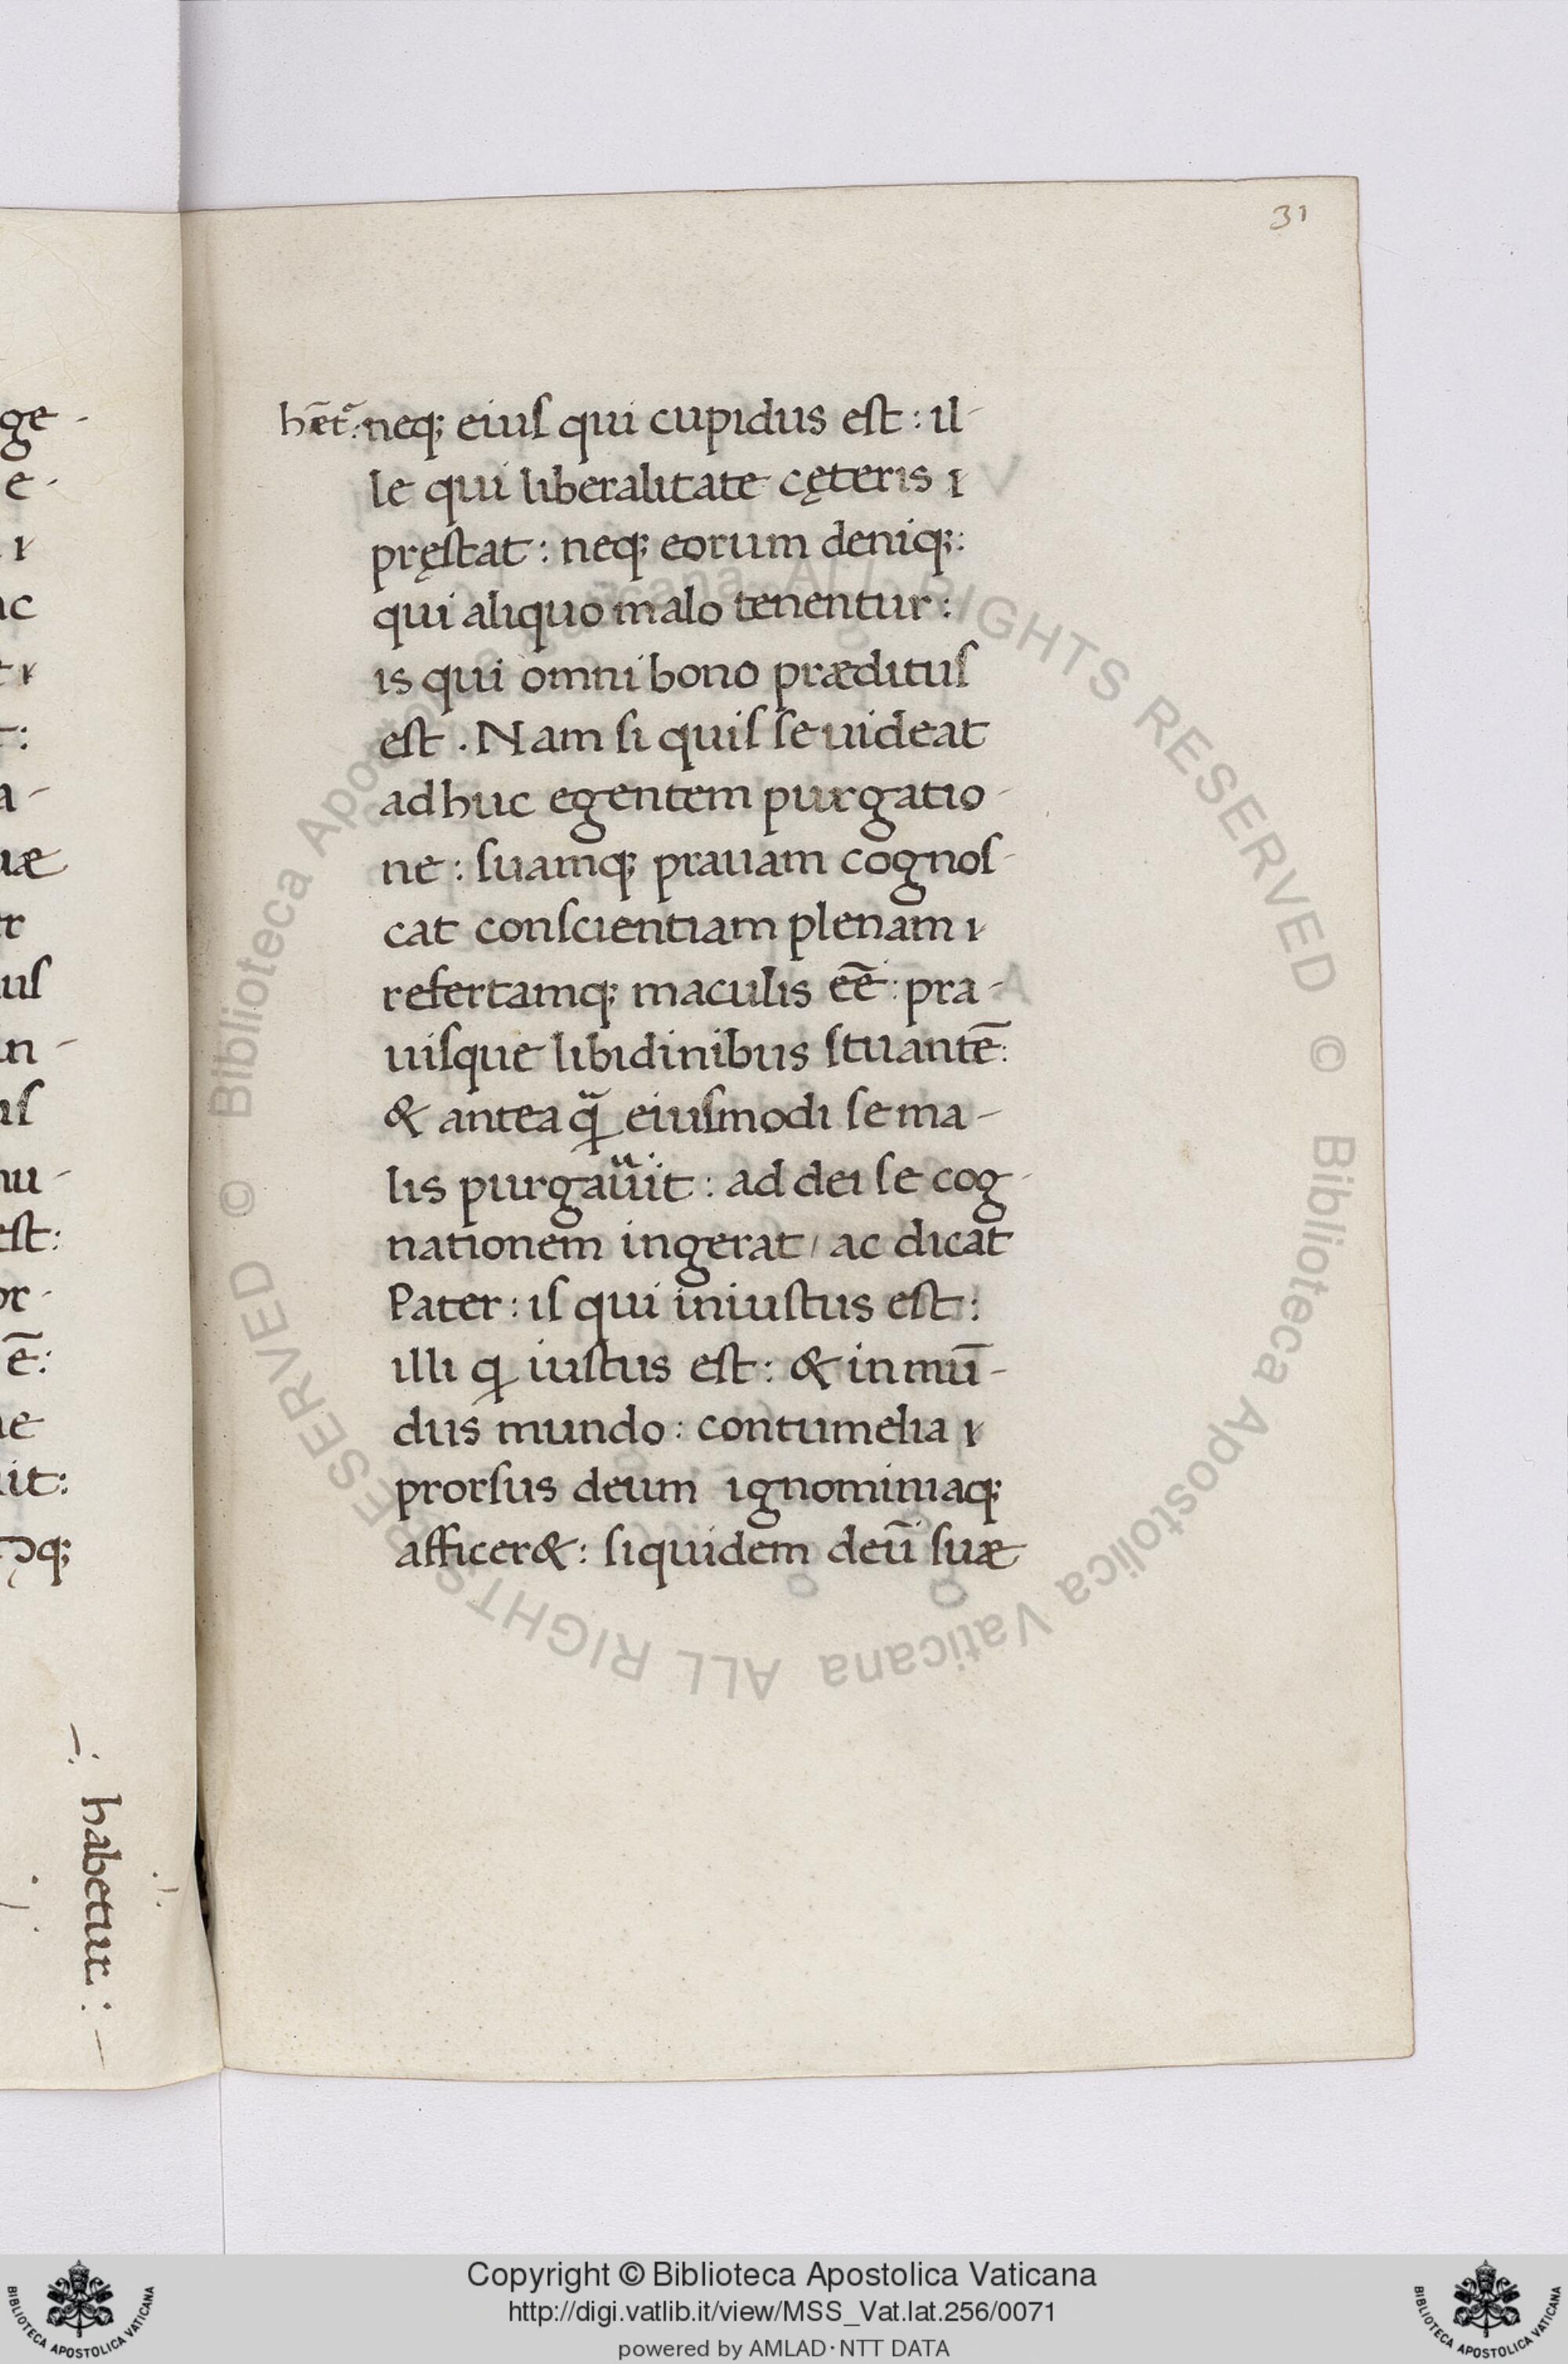 31
hētᷣ: neq; eiuſ qui cupidus eſt : il-
le qui liberalitate cęteris ı
pręſtat : neq; eorum deniq;:
qui aliquo malo tenentur :
is qui omni bono prædituſ
eſt . Nam ſi quiſ ſe uideat
adhuc egentem purgatio-
ne : ſuamq; prauam cognoſ-
cat conſcientiam plenam ı
refertamq; maculis eē : pra-
uiſque libidinibus ſtuantē:
& antea ꝗ̃ eiuſmodi ſe ma-
lis purgauit : ad dei ſe cog-
nationem ingerat / ac dicat
Pater : iſ qui iniuſtus eſt :
illi ꝗ iuſtus eſt : & inmū-
dus mundo : contumelia ı
prorſus deum ignominiaq;
afficer& : ſiquidem deū ſuæ
ge-
e-
ı
ac
t ı
t:
a-
uæ
er
uſ
in-
uſ
nu-
eſt:
or-
ē:
ue
uit:
ꝗ;
-: habetur : -
© Biblioteca Apostolica Vaticana ALL RIGHTS RESERVED © Biblioteca Apostolica Vaticana ALL RIGHTS RESERVED
Copyright © Biblioteca Apostolica Vaticana
http://digi.vatlib.it/view/MSS_Vat.lat.256/0071
powered by AMLAD·NTT DATA
BIBLIOTECA APOSTOLICA VATICANA
BIBLIOTECA APOSTOLICA VATICANA